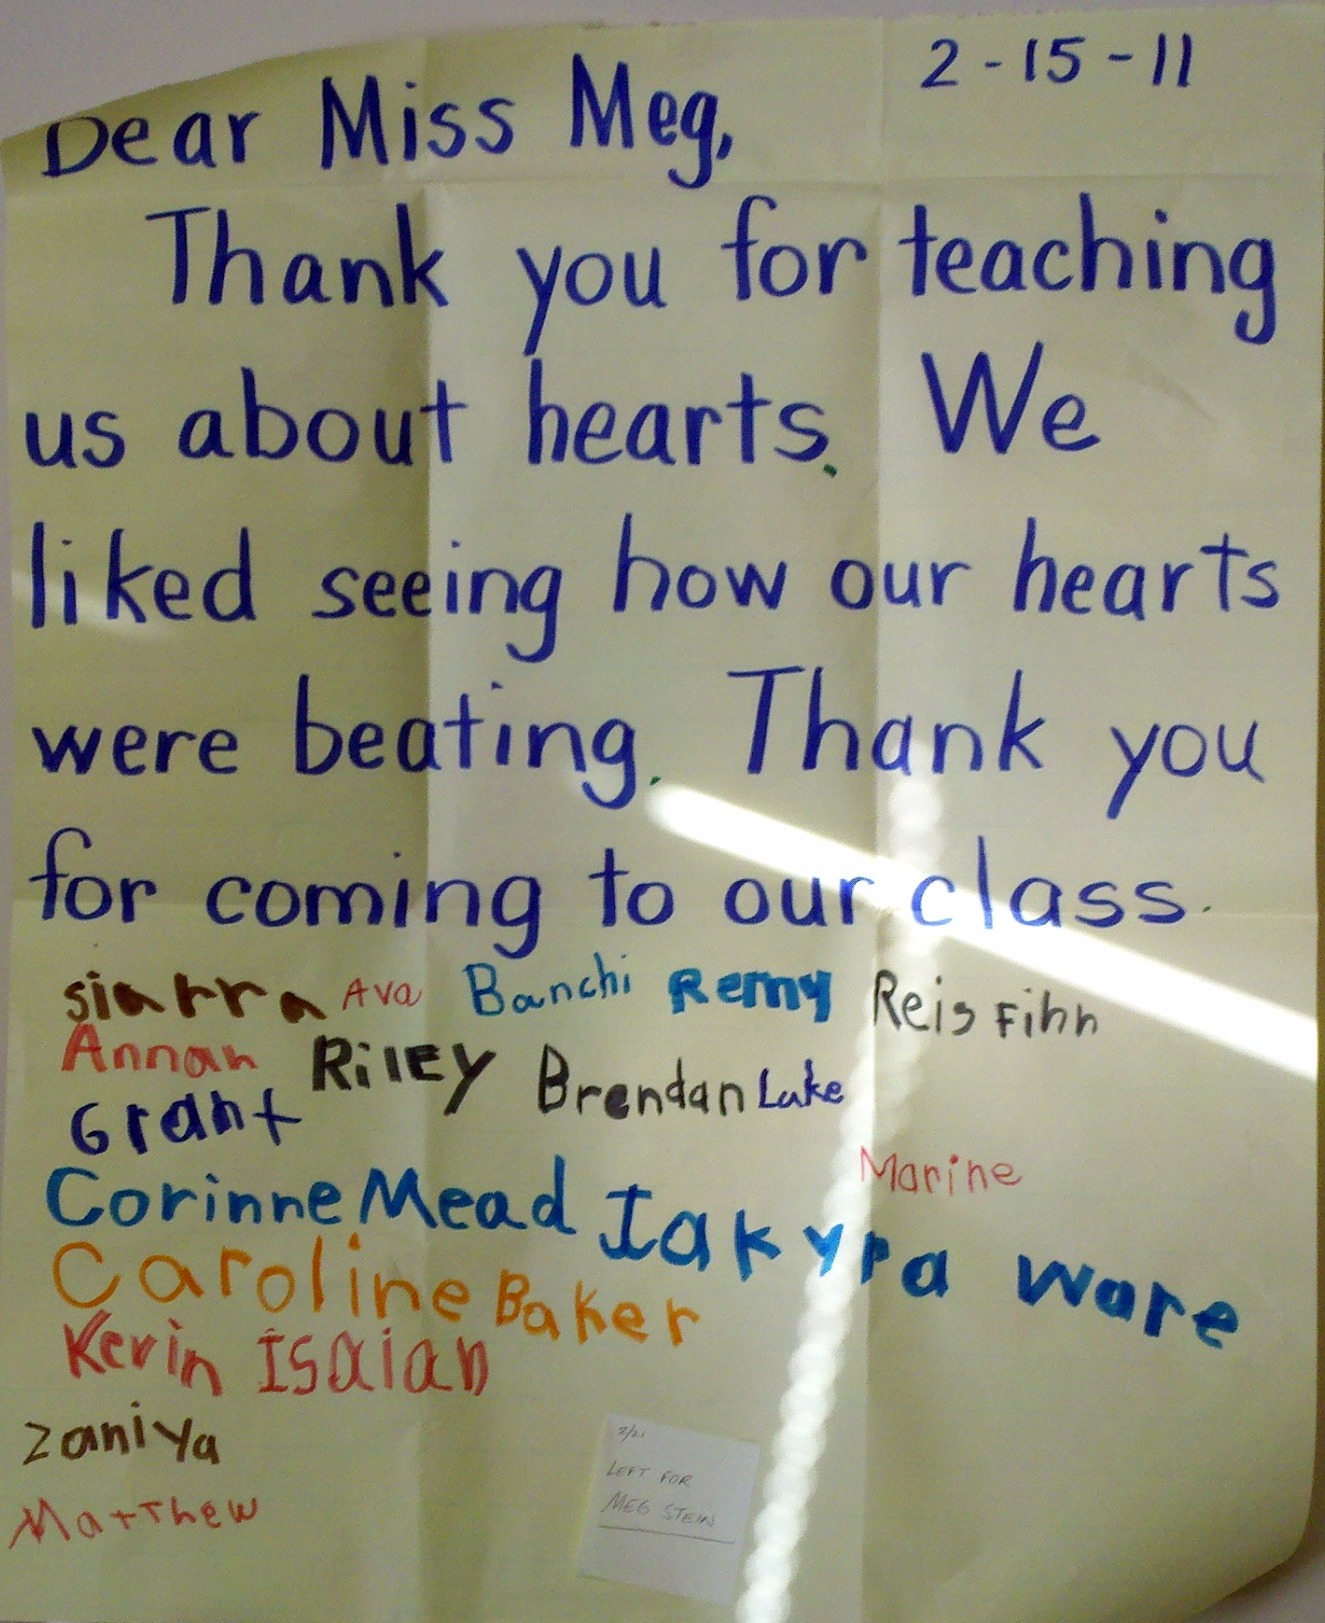 2-15-11
Dear Miss Meg,
Thank you for teaching
us about hearts. We
liked seeing how our hearts
were beating. Thank you
for coming to our class.
Siarra Ava Banchi Remy Reis Finn
Annah Riley Brendan Luke
Grant
Marine
Corinne Mead Iakyra Ware
Caroline Baker
Kevin Isaiah
Zaniya
Matthew
2/21
LEFT FOR
MEG STEIN